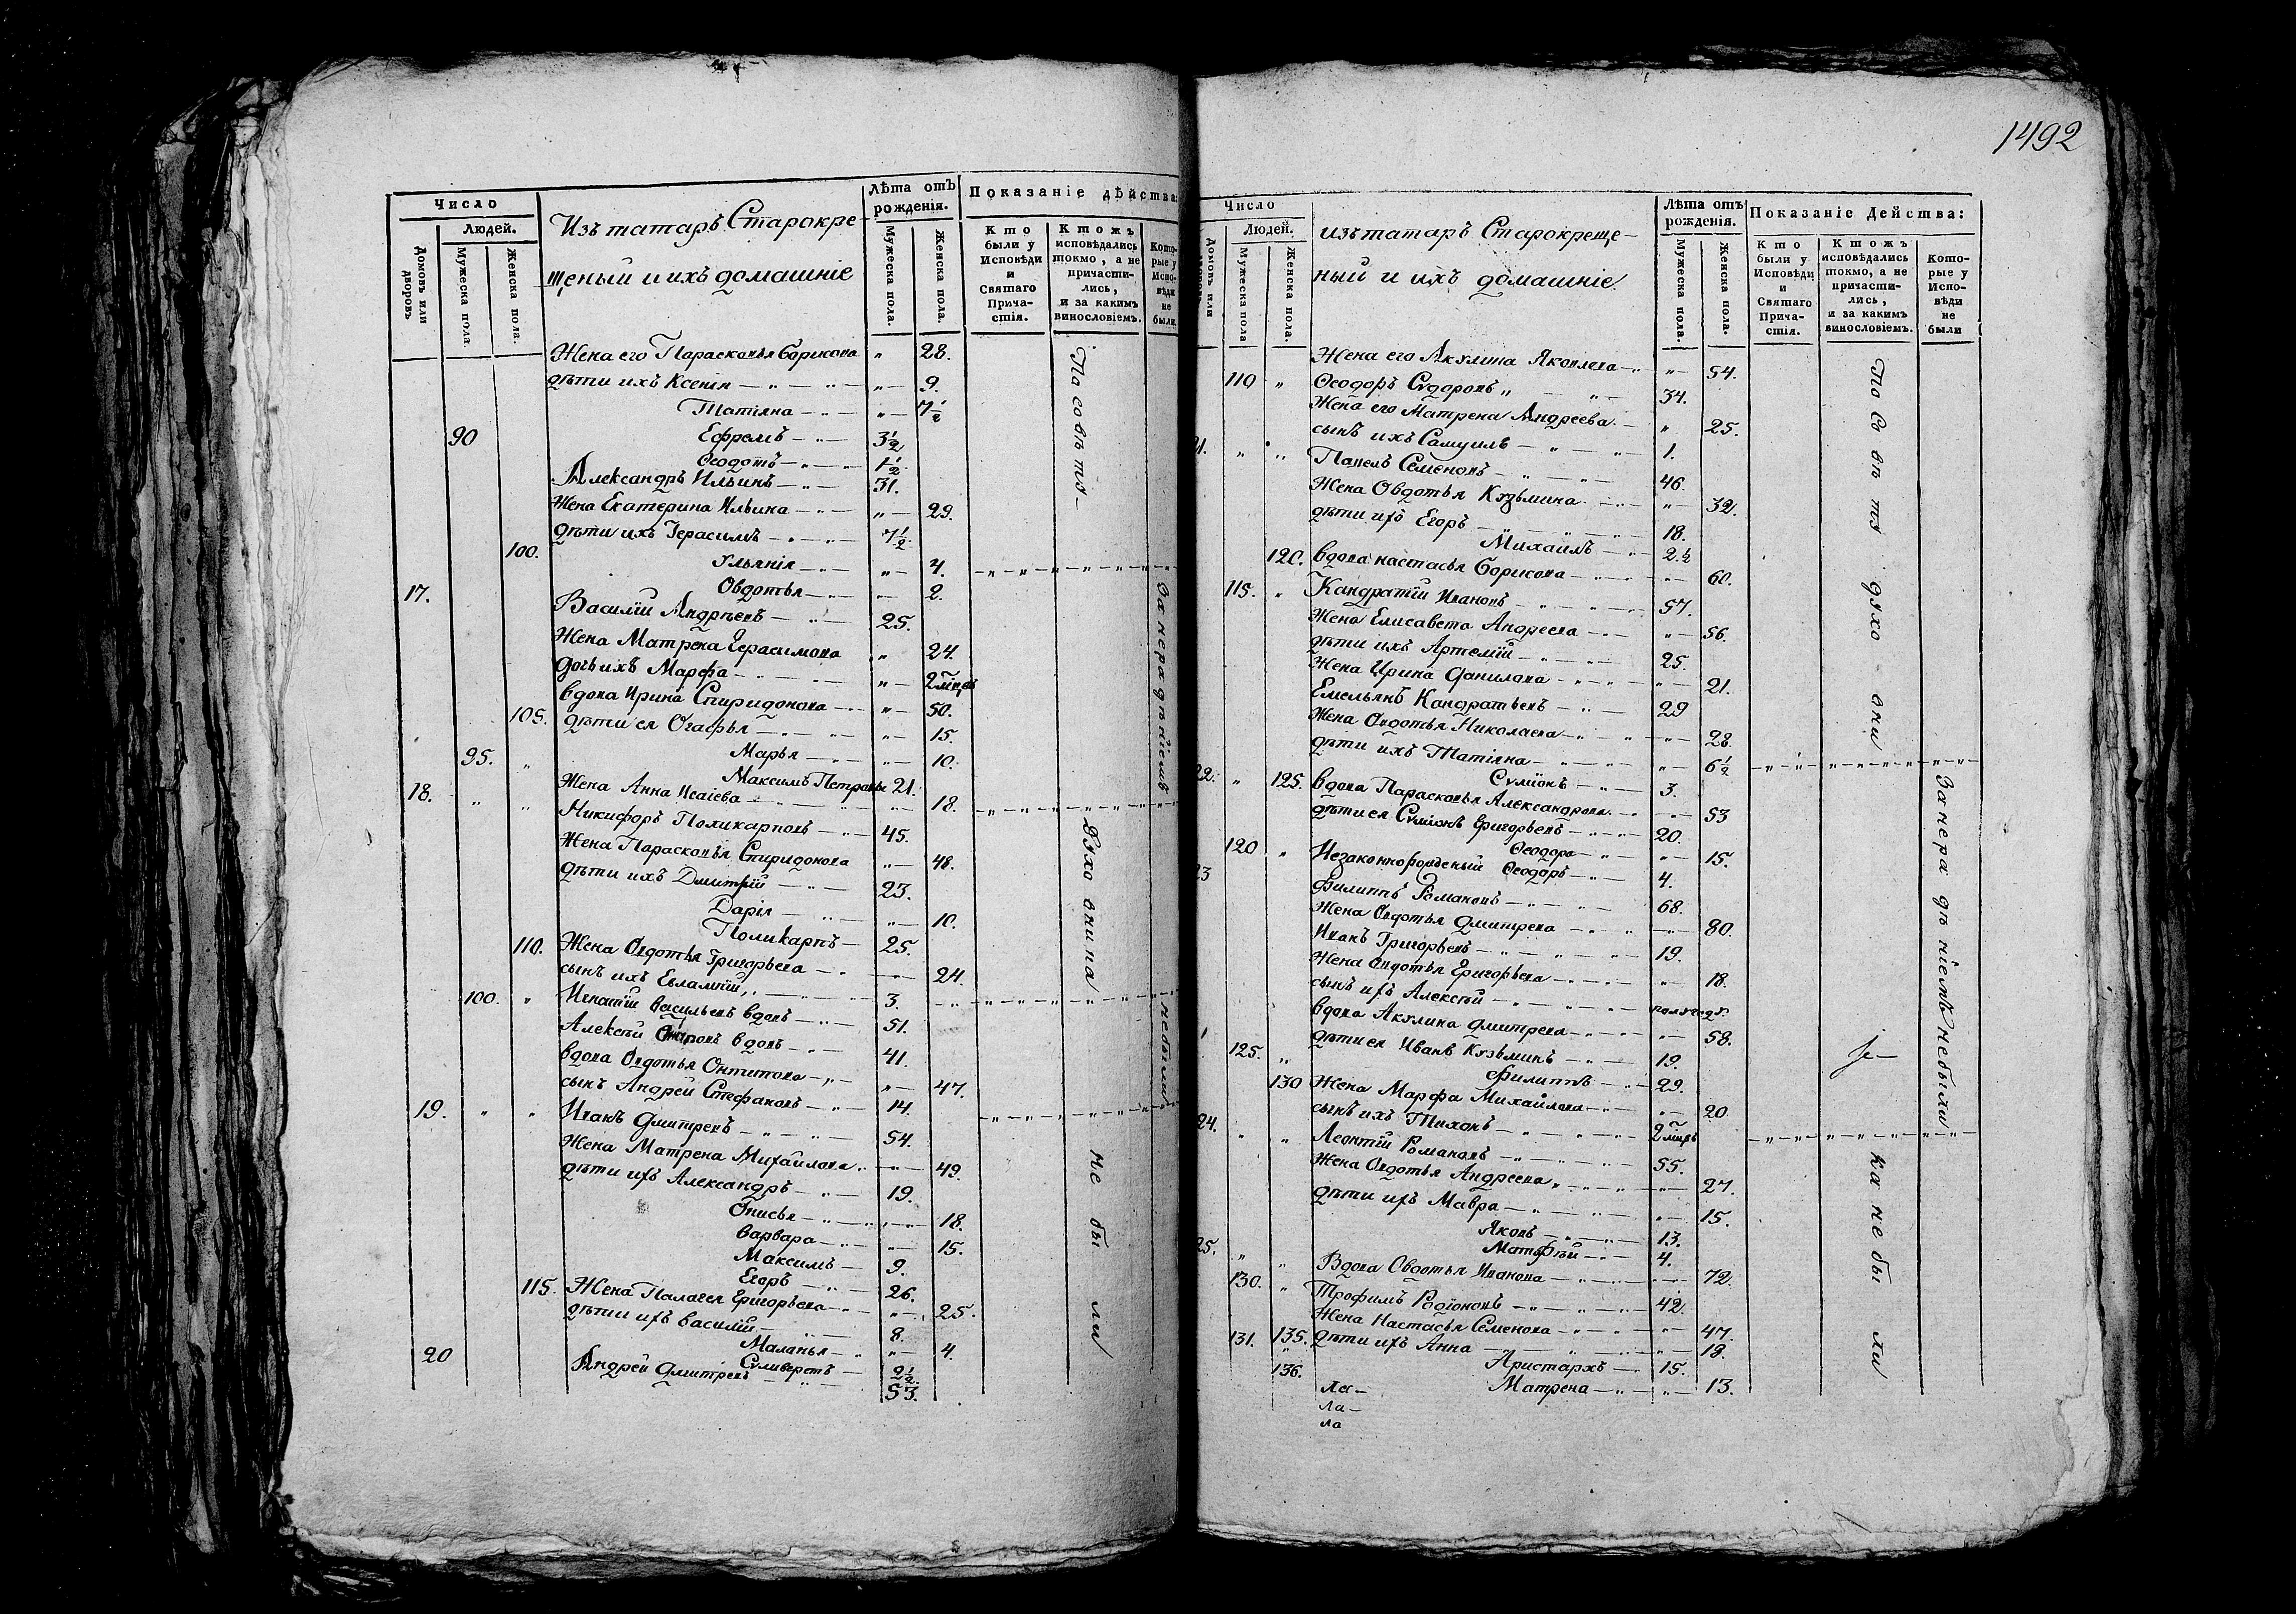 Число
Людей.
Домовъ или дворовъ
Мужеска пола.
Женска пола.
Изъ татаръ Старокре-
щеный и ихъ домашніе
Лѣта отъ рожденія.
Мужеска пола.
Женска пола.
Показаніе дѣйства:
Кто были у Исповѣди и Святаго Прича-стія.
Ктожъ исповѣдались токмо, а не причасти-лись, и за какимъ винословіемъ.
Кото-рые у Испо-вѣди не были
Жена его Парасковья Борисова „ 28.
дѣти ихъ Ксенія „ 9.
Татіяна „ 7½
90 Ефремъ 3½
Ѳеодотъ 1½
Александръ Ильинъ 31.
Жена Екатерина Ильина „ 29.
дѣти ихъ Герасимъ 7½
100. Ульянія „ 4.
Овдотья 2.
17. Василій Андрѣевъ 25.
Жена Матрена Герасимова „ 24.
дочь ихъ Марфа „ 2 мцъ
вдова Ирина Спиридонова „ 50.
105. дѣти ея Огафья „ 15.
95. „ Марья 10.
Максимъ Петровъ 21.
18. „ „ Жена Анна Исаіева 18.
Никифоръ Поликарповъ 45.
Жена Парасковья Спиридонова „ 48.
дѣти ихъ Дмитрій 23.
Дарія 10.
Поликарпъ 25.
110. Жена Овдотья Григорьева 24.
сынъ ихъ Евлампій 3.
100. „ Игнатій Васильевъ вдовъ 51.
Алексѣй вдовъ 41.
вдова Овдотья Онтипова „ 47.
сынъ Андрей Стефановъ 14.
19. „ „ Иванъ Дмитревъ 54.
Жена Матрена Михайлова 49.
дѣти ихъ Александръ 19.
Онисья 18.
Варвара 15.
Максимъ 9.
Егоръ 26.
115. Жена Палагея Григорьева 25.
дѣти ихъ Василій 8.
Маланья 4.
20 Суливерстъ 2½
Андрей Дмитревъ 53.
По совѣту
духовника
не были
За нерадѣніемъ
небыли
1492
Число
Людей.
Домовъ или
Мужеска пола
Женска пола.
изъ татаръ Старокреще-
ный и ихъ домашніе
Лѣта отъ рожденія.
Мужеска пола.
Женска пола.
Показаніе Действа:
Кто были у Исповѣди и Святаго Прича-стія.
Ктожъ исповѣдались токмо, а не причасти-лись, и за какимъ винословіемъ.
Кото-рые у Испо-вѣди не были
Жена его Акулина Яковлева 54.
110 „ Ѳеодоръ Сидоровъ 34.
Жена его Матрена Андреева „ 25.
сынъ ихъ Самуилъ 1.
21. „ „ Павелъ Семеновъ 46.
Жена Овдотья Кузьмина „ 32.
дѣти ихъ Егоръ 18.
Михаилъ 2.½
120. вдова Настасья Борисова 60.
115. „ Кандратій Ивановъ 57.
Жена Елисавета Андреева „ 56.
дѣти ихъ Артемій 25.
Жена Ирина Данилова 21.
Емельянъ Кандратьевъ 29
Жена Овдотья Николаева 28.
дѣти ихъ Татіяна 6½
Сумionъ 3.
22. „ 125. вдова Парасковья Александрова 53
дѣти ея Сумionъ Григорьевъ 20.
Ѳеодора 15.
120 „ Незаконорожденый Ѳеодоръ 4.
23 Филиппъ Романовъ 68.
Жена Овдотья Дмитрева 80.
Иванъ Григорьевъ 19.
Жена Овдотья Григорьева „ 18.
сынъ ихъ Алексѣй полугоду
вдова Акулина Дмитрева 58.
125. „ дѣти ея Иванъ Кузьминъ 19.
Филиппъ 29.
130 Жена Марфа Михайлова 20
сынъ ихъ Тихонъ 2 мцъ
24. „ „ Леонтій Романовъ 55.
Жена Овдотья Андреева 27.
дѣти ихъ Мавра 15.
Яковъ 13.
Матѳѣй 4.
25. „ „ Вдова Овдотья Иванова 72.
130. „ Трофимъ Родіоновъ 42.
Жена Настасья Семенова 47.
131. 135. дѣти ихъ Анна 18.
136. Аристархъ 15.
Матрена 13.
По совѣту
духовни
ка не были
За нерадѣніемъ небыли